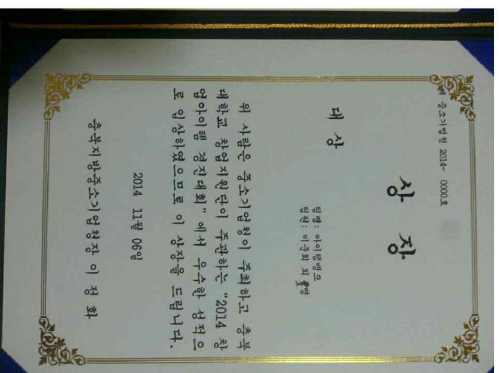 중소기업청 2014- 0000호
상 장
대 상
팀명: 아이템뱅크
팀원: 이주희 외
위 사람은 중소기업청이 주최하고 충북
대학교 창업지원단이 주관하는 "2014 창
업아이템 경진대회" 에서 우수한 성적으
로 입상하였으므로 이 상장을 드립니다.
2014 11월 06일
충북지방중소기업청장 이 정 화